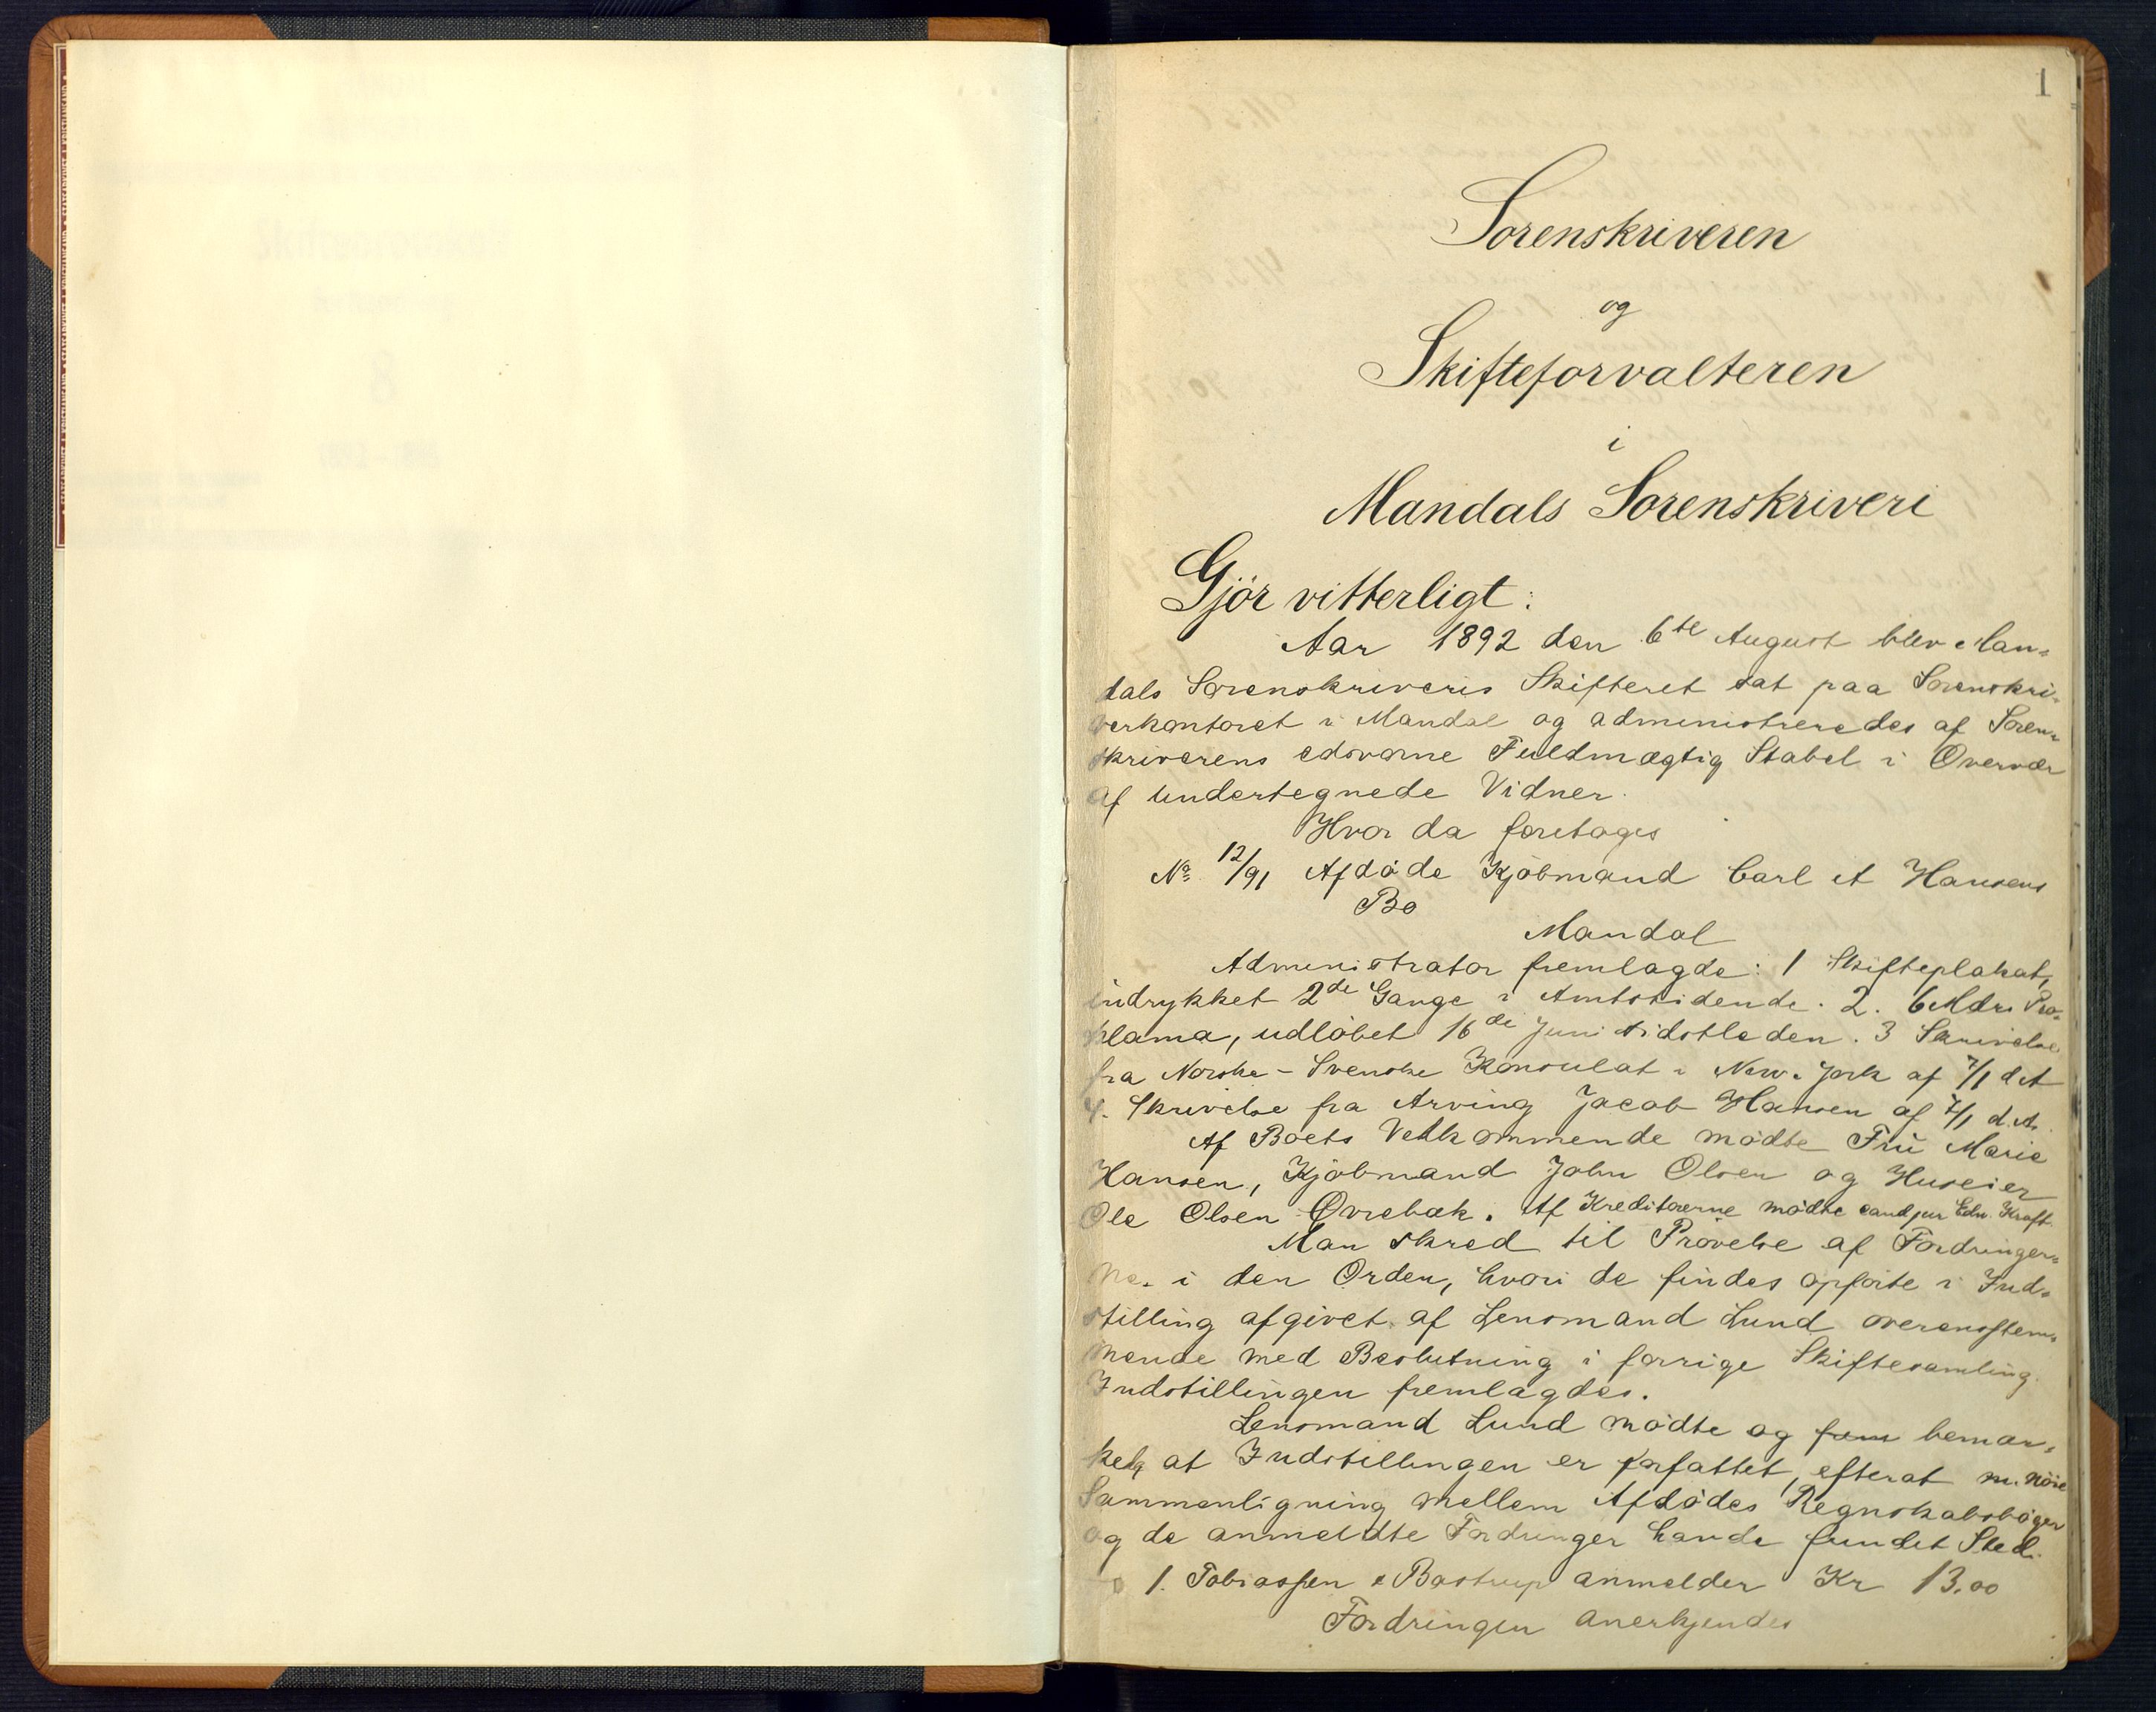 1
Sorenskriveren
og
Skifteforvalteren
i
Mandals Sorenskriveri
Gjör vitterligt:
Aar 1892 den 6te August blev Man-
dals Sorenskriveris Skifteret sat paa Sorenskri-
verkontoret i Mandal og administreredes af Soren-
skriverens edsvorne Fuldmægtig Stabel i Overvær
af undertegnede Vidner.
Hvor da foretages
No 12/91 Afdöde Kjöbmand Carl A Hansens
Bo
Mandal
Administrator fremlagde: 1 Skifteplakat,
indrykket 2de Gange i Amtstidende. 2. 6 Mdrs Pro-
klama, udlöbet 16de Juni sidstleden. 3 Skrivelse
fra Norske-Svenske Konsulat i New-York af 7/1 d A
4. Skrivelse fra Arving Jacob Hansen af 7/1 d. A.
Af Boets Vedkommende mödte Fru Marie
Hansen, Kjöbmand John Olsen og Huseier
Ole Olsen Övrebæk. Af Kreditorerne mödte cand jur Edv. Kraft.
Man skred til Prövelse af Fordringer-
ne i den Orden, hvori de findes opförte i Ind-
stilling afgivet af Lensmand Lund overensstem-
mende med Beslutning i forrige Skiftesamling.
Indstillingen fremlagdes.
Lensmand Lund mödte og frem bemær-
ket, at Indstillingen er forfattet, efterat m. nöie
Sammenligning mellem Afdödes Regnskabsböger
og de anmeldte Fordringer havde fundet Sted.
1. Tobiassen & Bastrup anmelder Kr 13.00
Fordringen anerkjendes